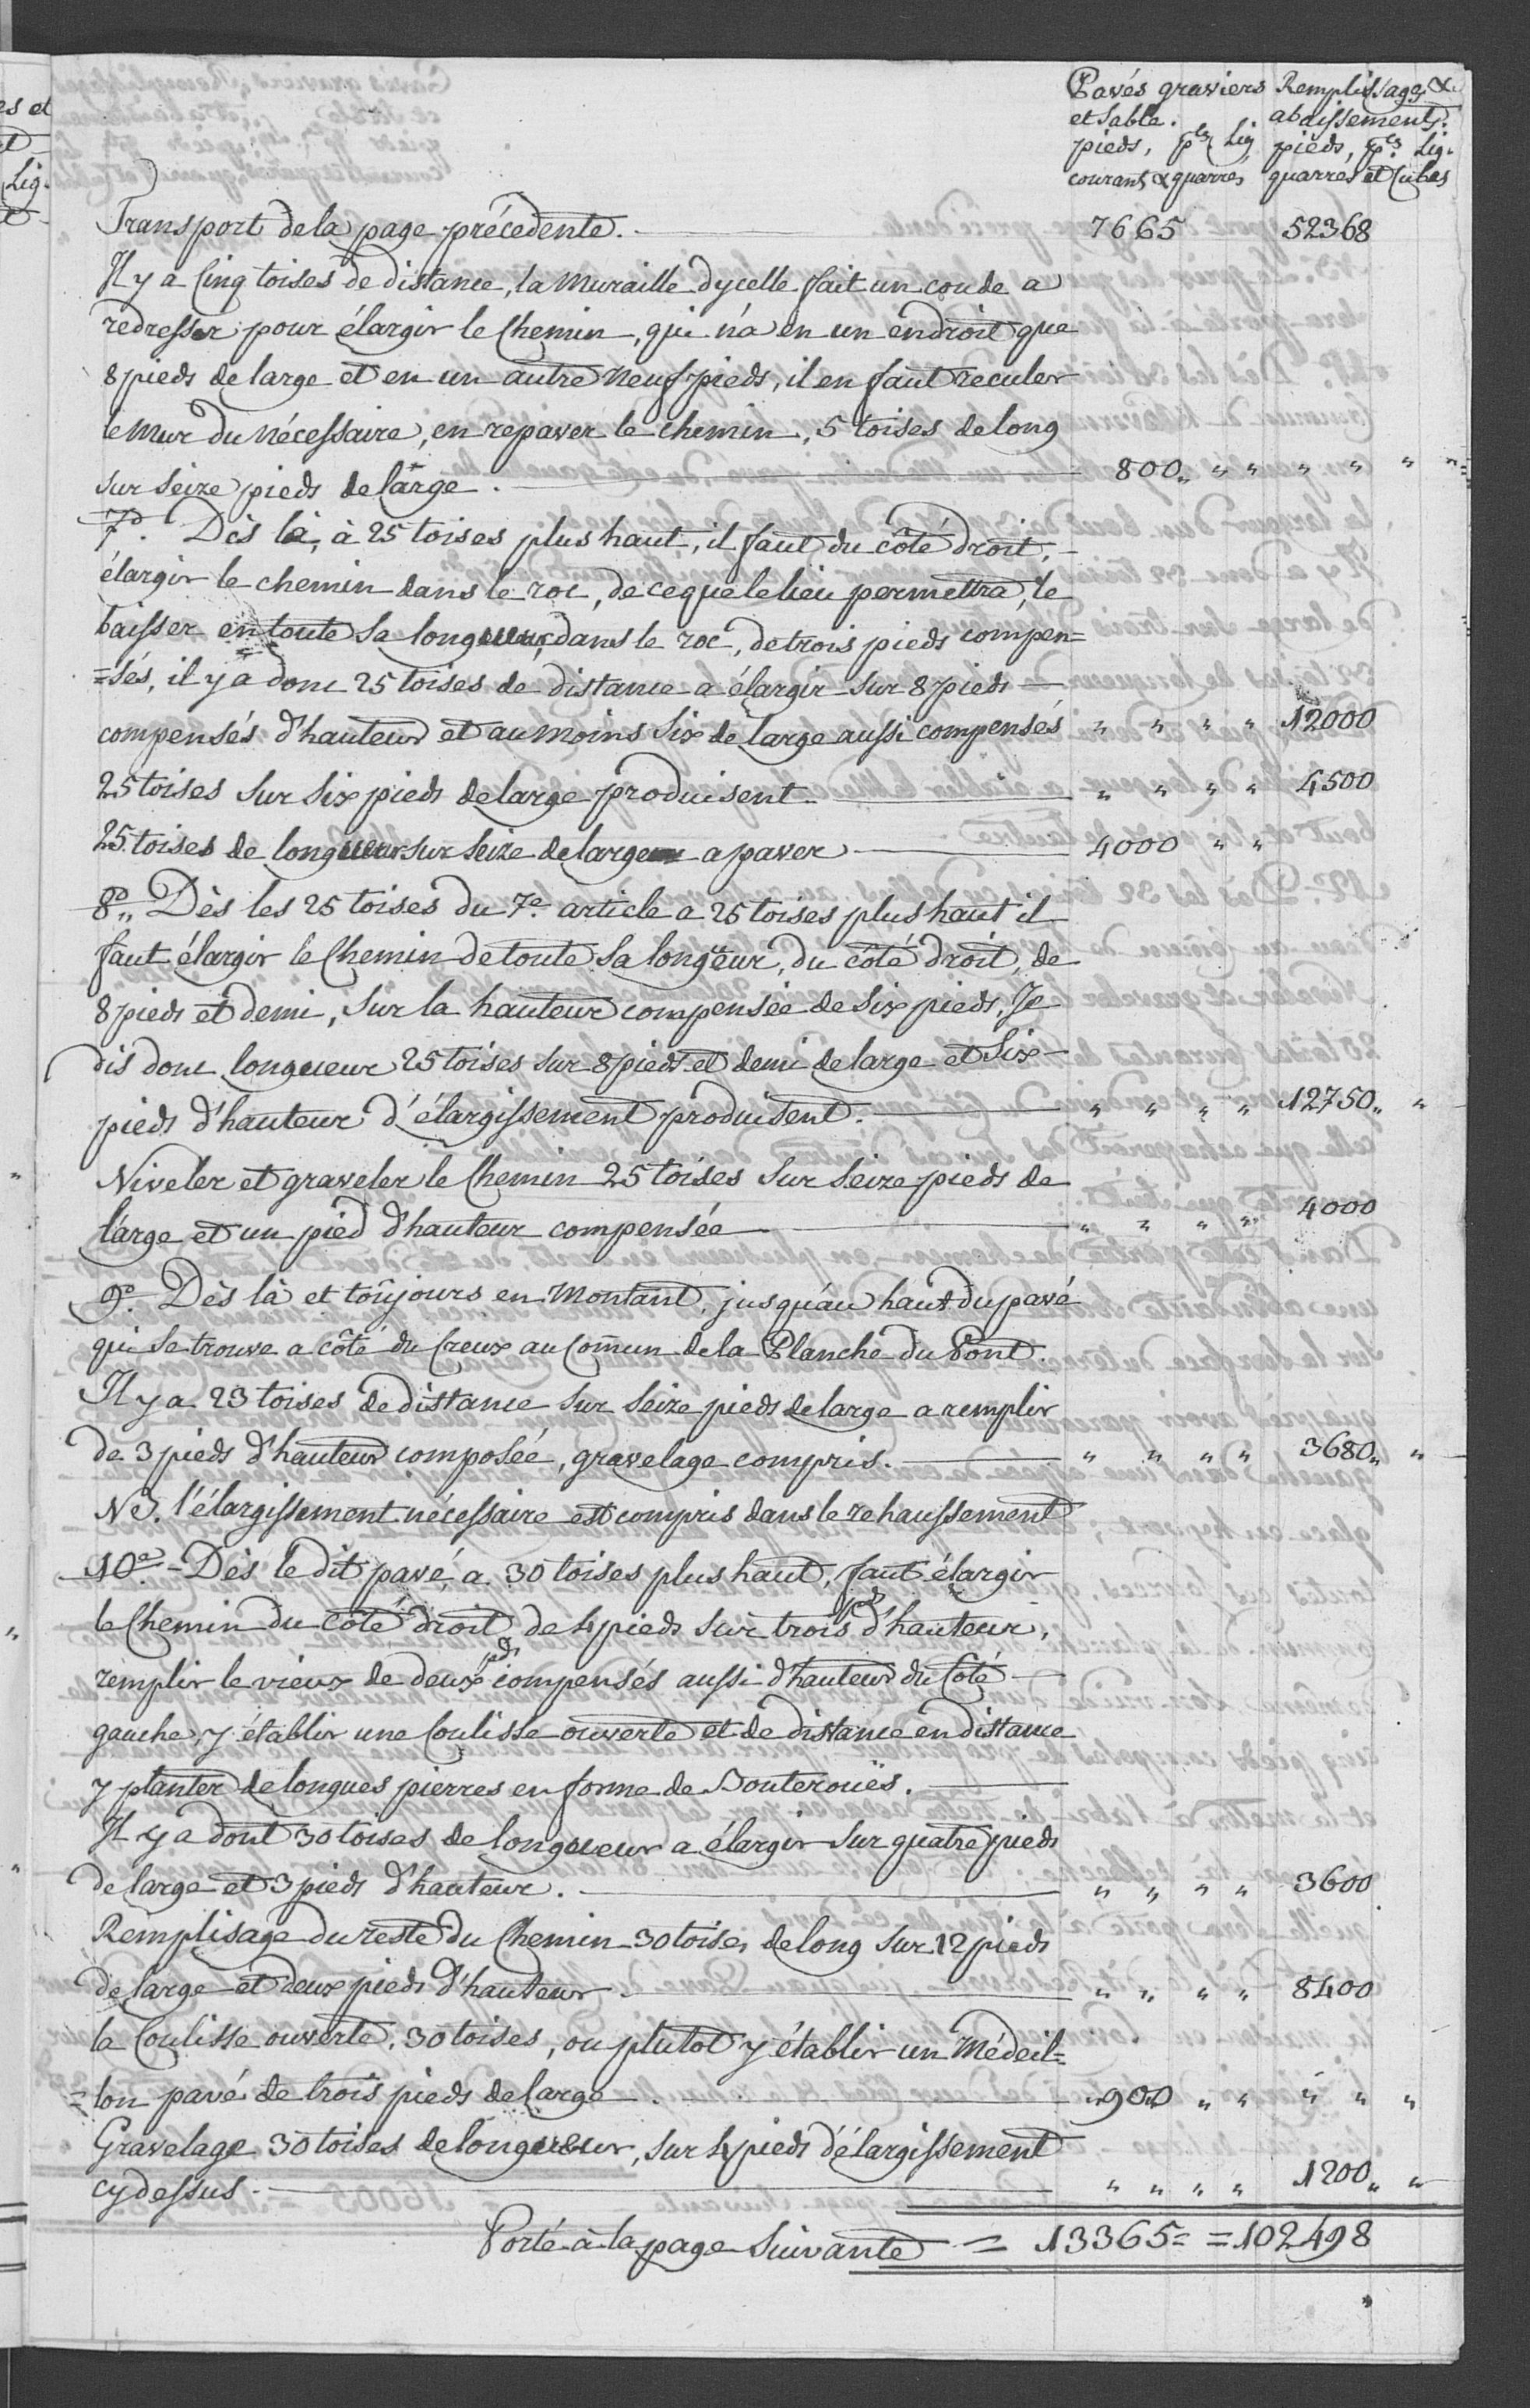 Pavés graviers Remplissage &
et Sable. abaissements.
pieds, pces Lig pieds, pces Lig.
courant & quarrés quarrés et Cubes
Transport de la page précedente. 7665 52368
Il y a Cinq toises de distance, la Muraille dycelle fait un coude a
redresser pour élargir le Chemin, qui n'a en un endroit que
8 pieds de large et en un autre Neuf pieds, il en faut reculer
le Mur du nécessaire, en repaver le chemin, 5 toises de long
sur seize pieds de large. 800 „ „ „ „ „ „ „
7o. Dès là, à 25 toises plus haut, il faut du côté droit,
élargir le chemin dans le roc, de ce que le lieu permettra, le
baisser en toute sa longueur, dans le roc, de trois pieds compen=
=sés, il y a donc 25 toises de distance a élargir sur 8 pieds
compensés d'hauteur et au moins Six de large aussi compensés „ „ „ „ 12000
25 toises sur six pieds de large produisent. „ „ „ „ 4500
25 toises de longueur sur seize de large a paver 4000 „ „
8o„ Dès les 25 toises du 7e. article a 25 toises plus haut il
faut élargir le Chemin de toute sa longeur, du côté droit, de
8 pieds et demi, sur la hauteur compensée de six pieds, Je
dis donc longueur 25 toises sur 8 pieds et demi de large et Six
pieds d'hauteur d'élargissement produisent. „ „ „ „ 12750 „ „
Niveler et graveler le Chemin 25 toises sur seize pieds de
large et un pied d'hauteur compensée „ „ „ „ 4000
9o. Dès là et toûjours en Montant, jusqu'au haut du pavé
qui se trouve a côté du Creux au Comun de la Planche du Pont.
Il y a 23 toises de distance sur seize pieds de large a remplir
de 3 pieds d'hauteur composée, gravelage compris. „ „ „ „ 3680 „ „
NB. l'élargissement nécessaire est compris dans le rehaussement
10e. - Dès le dit pavé, a 30 toises plus haut, faut élargir
le Chemin du côté droit de 4 pieds sur trois pds d'hauteur,
remplir le vieux de deux pds compensés aussi d'hauteur du Coté
gauche, y établir une Coulisse ouverte et de distance en distance
y planter de longues pierres en forme de Bouteroües.
Il y a dont 30 toises de longueur a élargir sur quatre pieds
de large et 3 pieds d'hauteur. „ „ „ „ 3600
Remplisage du reste du Chemin 30 toises de long sur 12 pieds
de large et deux pieds d'hauteur. „ „ „ „ 8400
la Coulisse ouverte, 30 toises, ou plutot y établir un Médeil=
=lon pavé de trois pieds de large. „ 900 „ „ „ „ „
Gravelage 30 toises de longueur, sur 4 pieds d'élargissement
cy dessus. „ „ „ „ 1200 „ „
Porté à la page Suivante = 13365 = = 102498